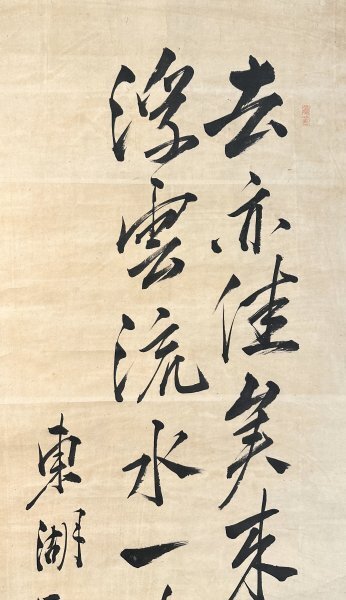 去亦佳矣来
浮雲流水一
東湖